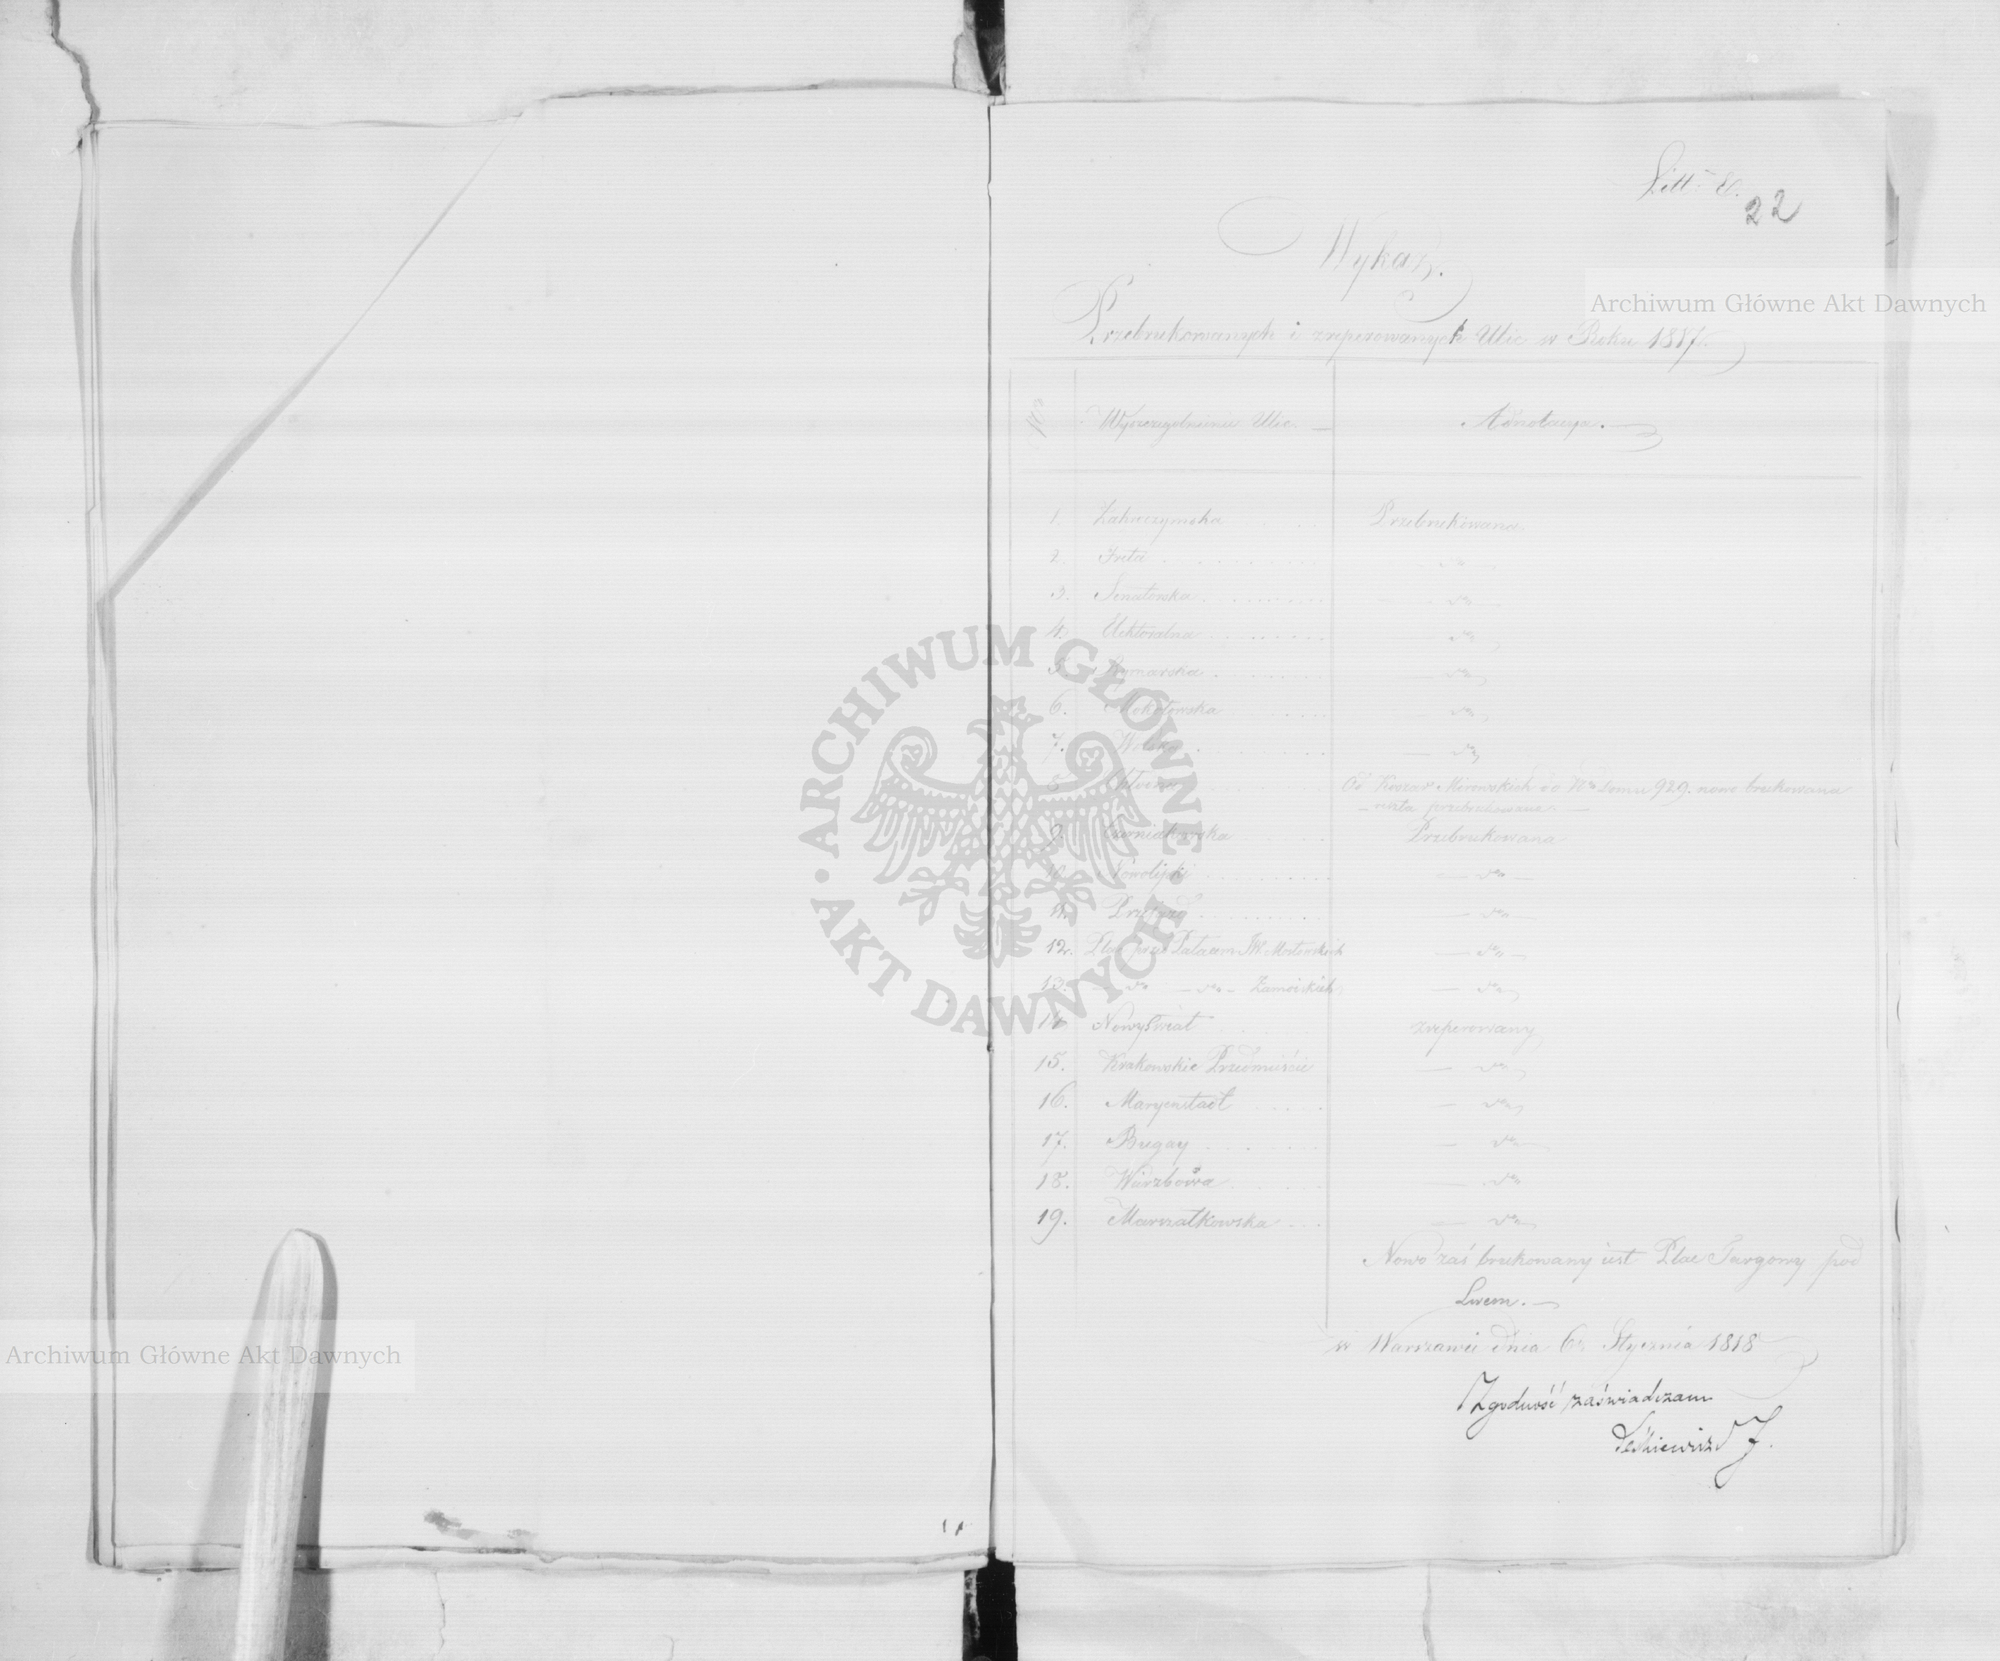 Litt. E.
22
Wykaz.
Archiwum Główne Akt Dawnych
Przebrukowanych i zreperowanych Ulic w Roku 1817.
Nro Wyszczegolnienie Ulic. Adnotacya.
1. Zakroczymska Przebrukowana.
2. Freta dto
3. Senatorska dto
4. Elektoralna dto
5. Rymarska dto
6. Mokotowska dto
7. Wolska dto
8. Chłodna Od Koszar Mirowskich do Nro Domu 929. nowo brukowana
reszta przebrukowana.
9. Czerniakowska Przebrukowana
10. Nowolipki dto
11. Przejazd dto
12. Plac przed Pałacem JW. Mostowskich dto
13. dto dto Zamoiskich dto
14. Nowy Swiat zreperowany
15. Krakowskie Przedmieście dto
16. Maryenstadt dto
17. Bugay dto
18. Wierzbowa dto
19. Marszałkowska dto
Nowo zaś brukowany iest Plac Targowy pod
Lwem.
w Warszawie dnia 6. Stycznia 1818
Zgodność zaświadczam
ARCHIWUM GŁÓWNE AKT DAWNYCH
Archiwum Główne Akt Dawnych